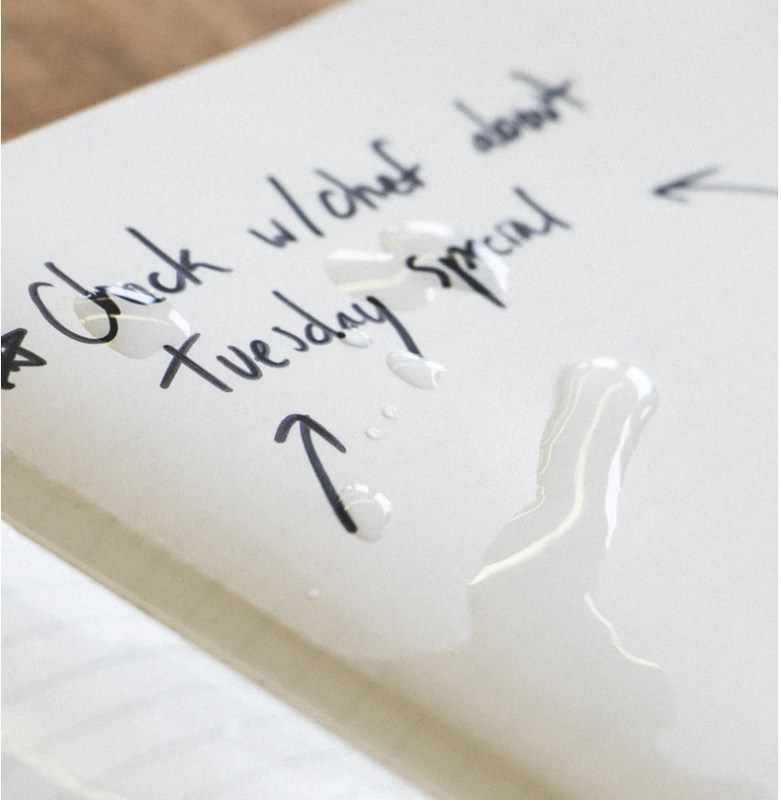 Check w/chef about
Tuesday special